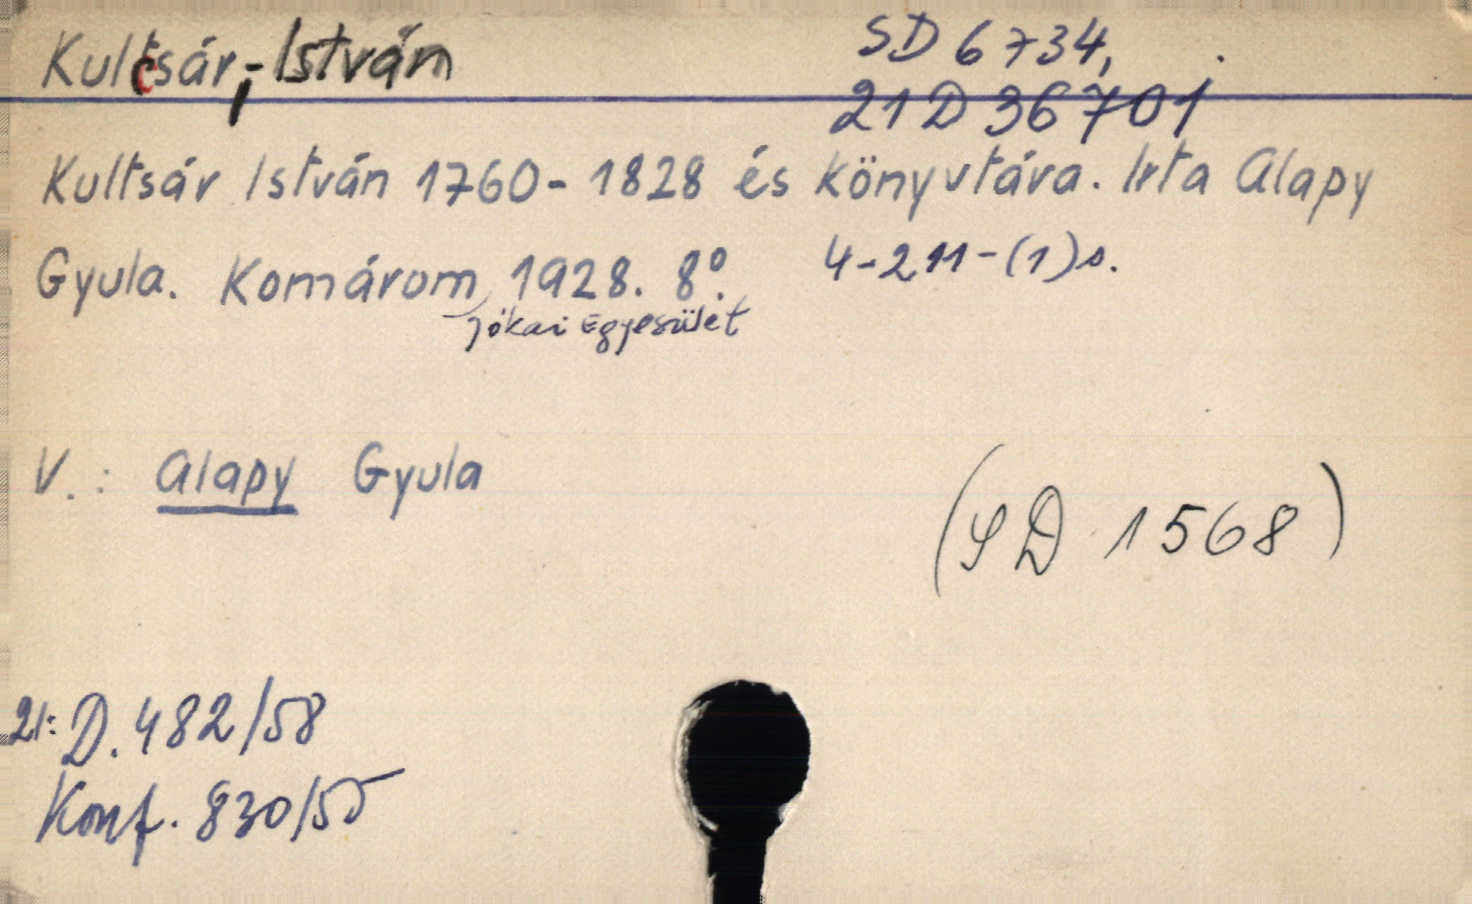 Kulcsár, István
SD 6734,
21 D 36701
Kultsár István 1760-1828 és könyvtára. Irta Alapy
Gyula. Komárom, 1928. 8°. 4-211-(1) s.
Jókai Egyesület
V.: Alapy Gyula
(SD 1568)
21: D. 482/58
Konf. 830/55